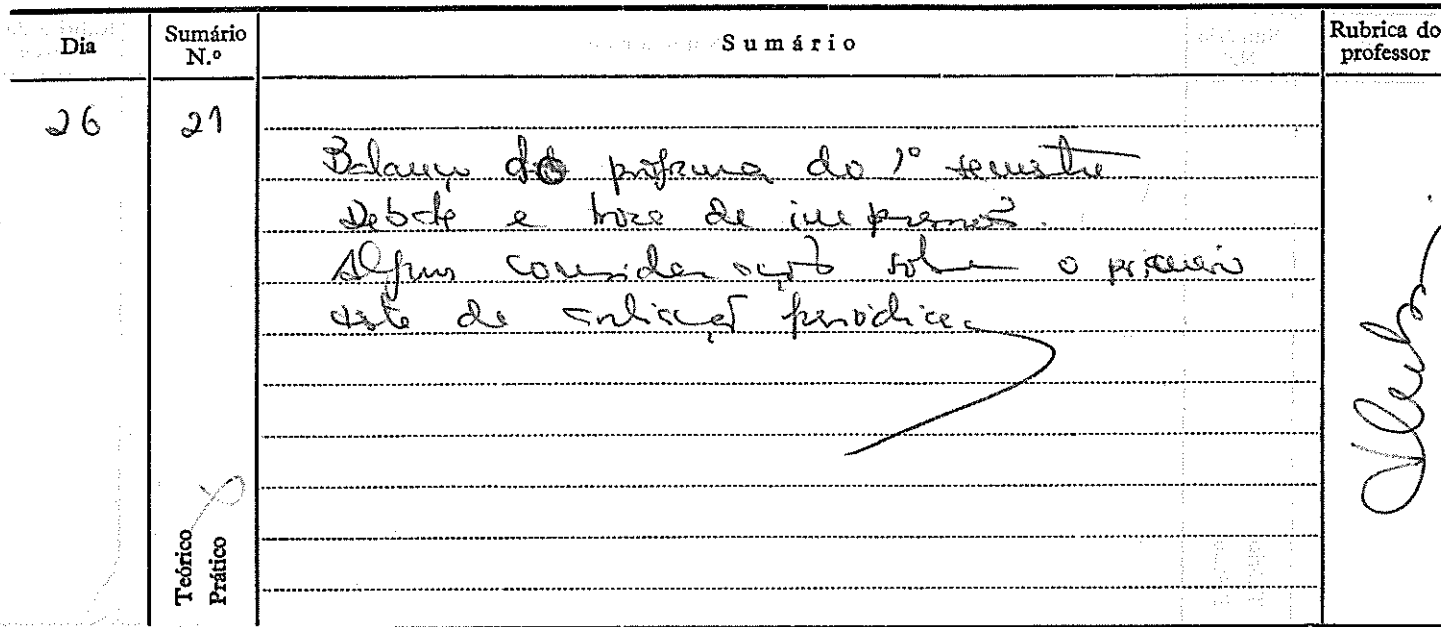 Dia
Sumário N.º
Sumário
Rubrica do professor
26
21
Balanço do programa do 1º semestre
Debate e troca de impressões.
Algumas considerações sobre o primeiro
teste de avaliação periódica
Teórico
Prático